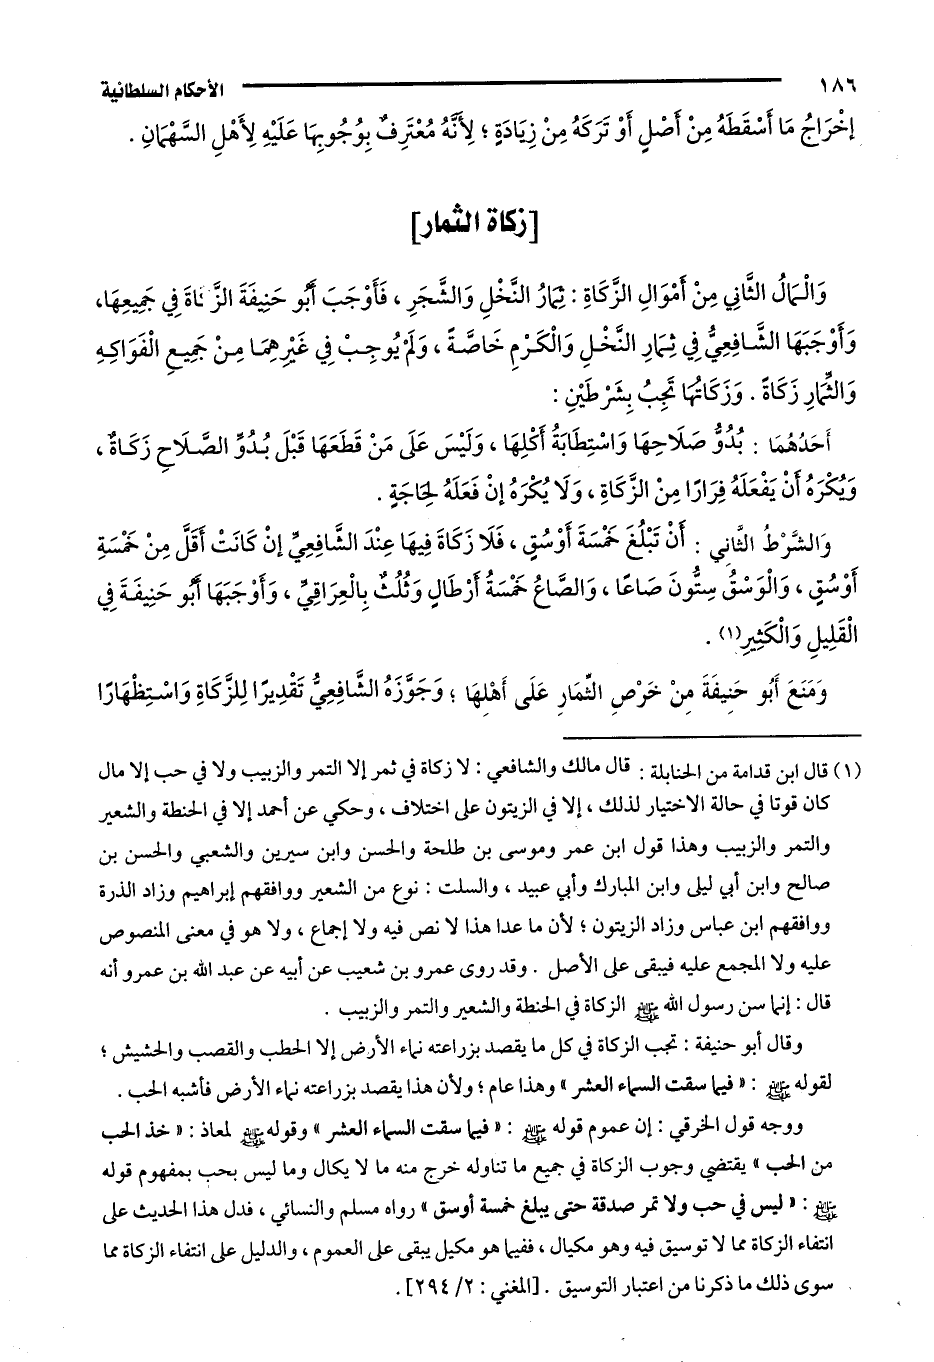 ١٨٦ الأحكام السلطانية
إِخْرَاجُ مَا أَسْقَطَهُ مِنْ أَصْلٍ أَوْ تَرَكَهُ مِنْ زِيَادَةٍ ؛ لِأَنَّهُ مُعْتَرِفٌ بِوُجُوبِهَا عَلَيْهِ لِأَهْلِ السُّهْمَانِ .
[زكاة الثمار]
وَالْمَالُ الثَّانِي مِنْ أَمْوَالِ الزَّكَاةِ : ثِمَارُ النَّخْلِ وَالشَّجَرِ ، فَأَوْجَبَ أَبُو حَنِيفَةَ الزَّكَاةَ فِي جَمِيعِهَا،
وَأَوْجَبَهَا الشَّافِعِيُّ فِي ثِمَارِ النَّخْلِ وَالْكَرْمِ خَاصَّةً ، وَلَمْ يُوجِبْ فِي غَيْرِهِمَا مِنْ جَمِيعِ الْفَوَاكِهِ
وَالثِّمَارِ زَكَاةً . وَزَكَاتُهَا تَجِبُ بِشَرْطَيْنِ :
أَحَدُهُمَا : بُدُوُّ صَلَاحِهَا وَاسْتِطَابَةُ أَكْلِهَا ، وَلَيْسَ عَلَى مَنْ قَطَعَهَا قَبْلَ بُدُوِّ الصَّلَاحِ زَكَاةٌ ،
وَيُكْرَهُ أَنْ يَفْعَلَهُ فِرَارًا مِنْ الزَّكَاةِ ، وَلَا يُكْرَهُ إِنْ فَعَلَهُ لِحَاجَةٍ .
وَالشَّرْطُ الثَّانِي : أَنْ تَبْلُغَ خَمْسَةَ أَوْسُقٍ ، فَلَا زَكَاةَ فِيهَا عِنْدَ الشَّافِعِيِّ إِنْ كَانَتْ أَقَلَّ مِنْ خَمْسَةِ
أَوْسُقٍ ، وَالْوَسْقُ سِتُّونَ صَاعًا ، وَالصَّاعُ خَمْسَةُ أَرْطَالٍ وَثُلُثٌ بِالْعِرَاقِيِّ ، وَأَوْجَبَهَا أَبُو حَنِيفَةَ فِي
الْقَلِيلِ وَالْكَثِيرِ(١) .
وَمَنَعَ أَبُو حَنِيفَةَ مِنْ خَرْصِ الثِّمَارِ عَلَى أَهْلِهَا ؛ وَجَوَّزَهُ الشَّافِعِيُّ تَقْدِيرًا لِلزَّكَاةِ وَاسْتِظْهَارًا
(١) قال ابن قدامة من الحنابلة : قال مالك والشافعي : لا زكاة في ثمر إلا التمر والزبيب ولا في حب إلا مال
كان قوتا في حالة الاختيار لذلك ، إلا في الزيتون على اختلاف ، وحكي عن أحمد إلا في الحنطة والشعير
والتمر والزبيب وهذا قول ابن عمر وموسى بن طلحة والحسن وابن سيرين والشعبي والحسن بن
صالح وابن أبي ليلى وابن المبارك وأبي عبيد ، والسلت : نوع من الشعير ووافقهم إبراهيم وزاد الذرة
ووافقهم ابن عباس وزاد الزيتون ؛ لأن ما عدا هذا لا نص فيه ولا إجماع ، ولا هو في معنى المنصوص
عليه ولا المجمع عليه فيبقى على الأصل . وقد روى عمرو بن شعيب عن أبيه عن عبد الله بن عمرو أنه
قال : إنما سن رسول الله ﷺ الزكاة في الحنطة والشعير والتمر والزبيب .
وقال أبو حنيفة : تجب الزكاة في كل ما يقصد بزراعته نماء الأرض إلا الحطب والقصب والحشيش ؛
لقوله ﷺ : « فيما سقت السماء العشر » وهذا عام ؛ ولأن هذا يقصد بزراعته نماء الأرض فأشبه الحب .
ووجه قول الخرقي : إن عموم قوله ﷺ : « فيما سقت السماء العشر » وقوله ﷺ لمعاذ : « خذ الحب
من الحب » يقتضي وجوب الزكاة في جميع ما تناوله خرج منه ما لا يكال وما ليس بحب بمفهوم قوله
ﷺ : « ليس في حب ولا تمر صدقة حتى يبلغ خمسة أوسق » رواه مسلم والنسائي ، فدل هذا الحديث على
انتفاء الزكاة مما لا توسيق فيه وهو مكيال ، ففيما هو مكيل يبقى على العموم ، والدليل على انتفاء الزكاة مما
سوى ذلك ما ذكرنا من اعتبار التوسيق . [المغني : ٢/ ٢٩٤].